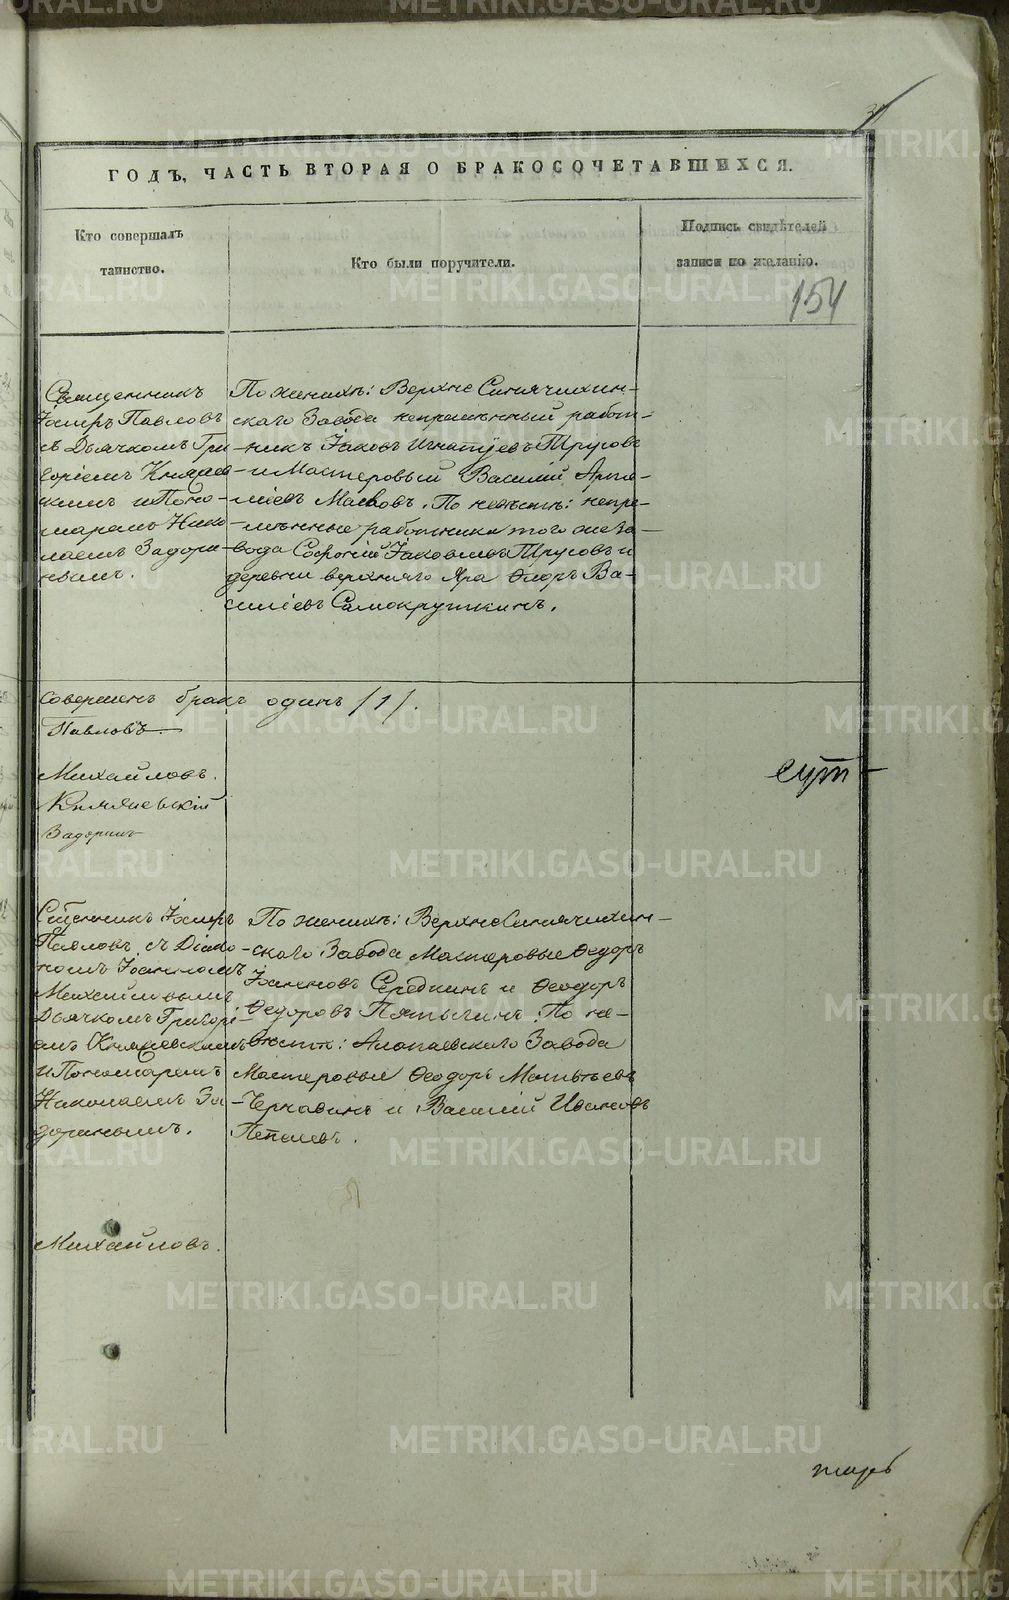 ГОДЪ, ЧАСТЬ ВТОРАЯ О БРАКОСОЧЕТАВШИХСЯ.
Кто совершалъ
таинство.
Кто были поручители.
Подпись свидѣтелей
записи по желанію.
154
Священникъ
Павловъ
съ Дьячкомъ Гри
горіемъ Княжев
скимъ и Поно-
маремъ Нико
лаемъ Задори
нымъ.
По женихѣ: Верхне Синячихин-
скаго Завода непремѣнный работ-
никъ Іаковъ Игнатіевъ Трусовъ
и Мастеровый Василій Арте-
міевъ Маевовъ. По невѣстѣ: непре-
мѣнные работники того же За-
вода Софроній Іаковлевъ Трусовъ и
деревни верхняго Яра Ѳеодоръ Ва-
силіевъ Самокруткинъ.
Совершенъ бракъ одинъ /1/.
Павловъ
Михайловъ.
Княжевскій
Задоринъ
Сщенникъ
Павловъ съ Діако
номъ Іоанномъ
Михайловымъ
Дьячкомъ Григорі-
емъ Княжевскимъ
и Пономаремъ
Николаемъ За
доринымъ.
По женихѣ: Верхне Синячихин-
скаго Завода Мастеровые Ѳедоръ
Іоанновъ Середкинъ и Ѳеодоръ
Ѳедоровъ Пятыгинъ. По не-
вѣстѣ: Алапаевскаго Завода
Мастеровые Ѳеодоръ Матвѣевъ
Черкавинъ и Василій Ивановъ
Михайловъ.
METRIKI.GASO-URAL.RU